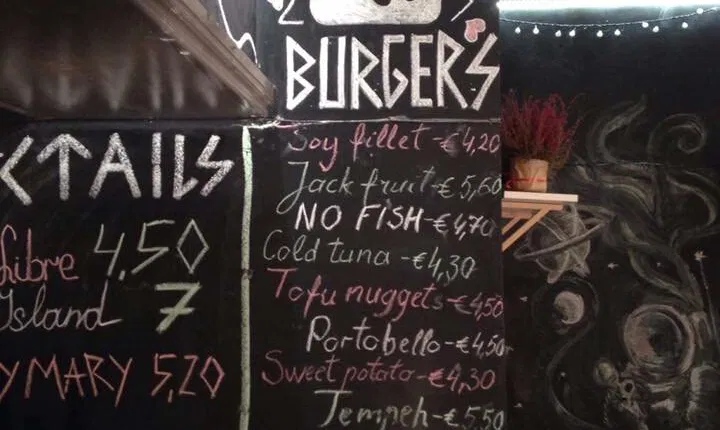 BURGER'S
Soy fillet -€4,20
Jack fruit -€5,60
NO FISH -€4,70
Cold tuna -€4,30
Tofu nuggets -€4,50
Portobello -€4,50
Sweet potato -€4,30
Tempeh -€5,50
CTAILS
Libre 4.50
Island 7
Y MARY 5,20